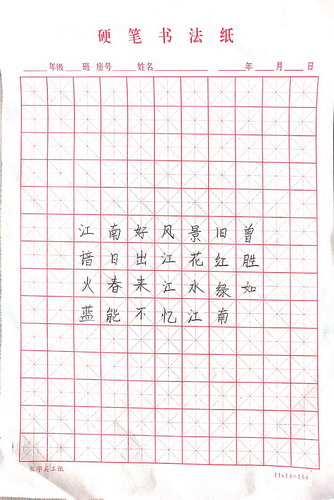 硬笔书法纸
年级 班 座号 姓名 年 月 日
江南好风景旧曾
谙日出江花红胜
火春来江水绿如
蓝能不忆江南
11x14=154